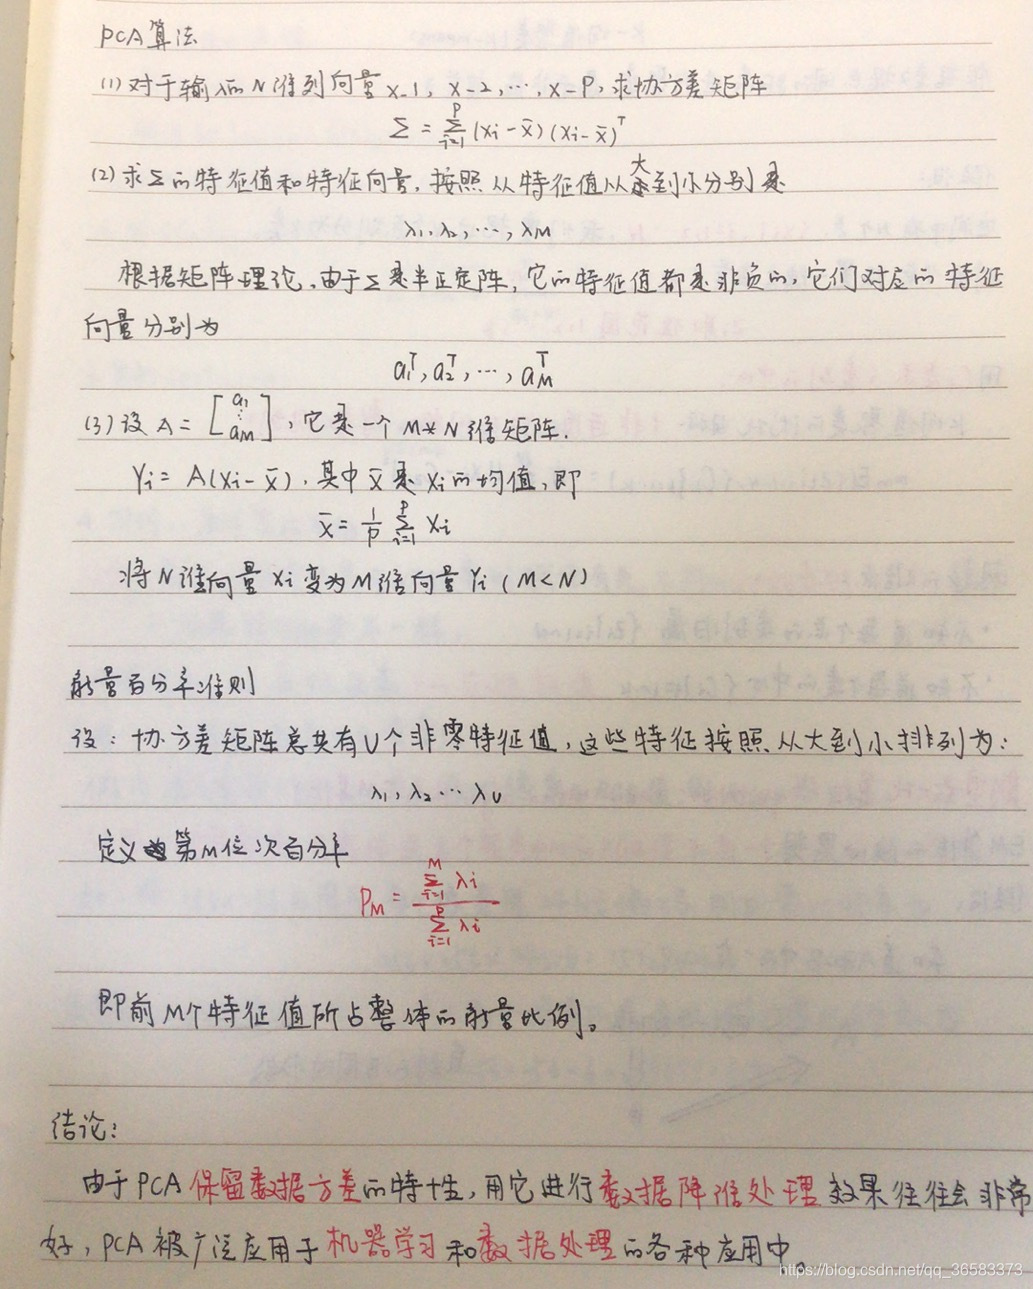 PCA算法
(1)对于输入的N维列向量x_1, x_2, ⋯, x_P, 求协方差矩阵
Σ = Σ_{i=1}^{P} (xi-x̄)(xi-x̄)^T
(2)求Σ的特征值和特征向量,按照从特征值从大到小分别是
λ1, λ2, ⋯, λM
根据矩阵理论,由于Σ是半正定阵,它的特征值都是非负的,它们对应的特征
向量分别为
a1^T, a2^T, ⋯, aM^T
(3)设A = [a1 ⋮ aM], 它是一个M*N维矩阵.
Yi = A(xi-x̄), 其中x̄是xi的均值,即
x̄ = 1/P Σ_{i=1}^{P} xi
将N维向量xi变为M维向量Yi (M<N)
能量百分率准则
设:协方差矩阵总共有U个非零特征值,这些特征按照从大到小排列为:
λ1, λ2 ⋯ λU
定义第M位次百分率
PM = Σ_{i=1}^{M} λi / Σ_{i=1}^{P} λi
即前M个特征值所占整体的能量比例。
结论:
由于PCA保留数据方差的特性,用它进行数据降维处理效果往往会非常
好,PCA被广泛应用于机器学习和数据处理的各种应用中。
https://blog.csdn.net/qq_36583373